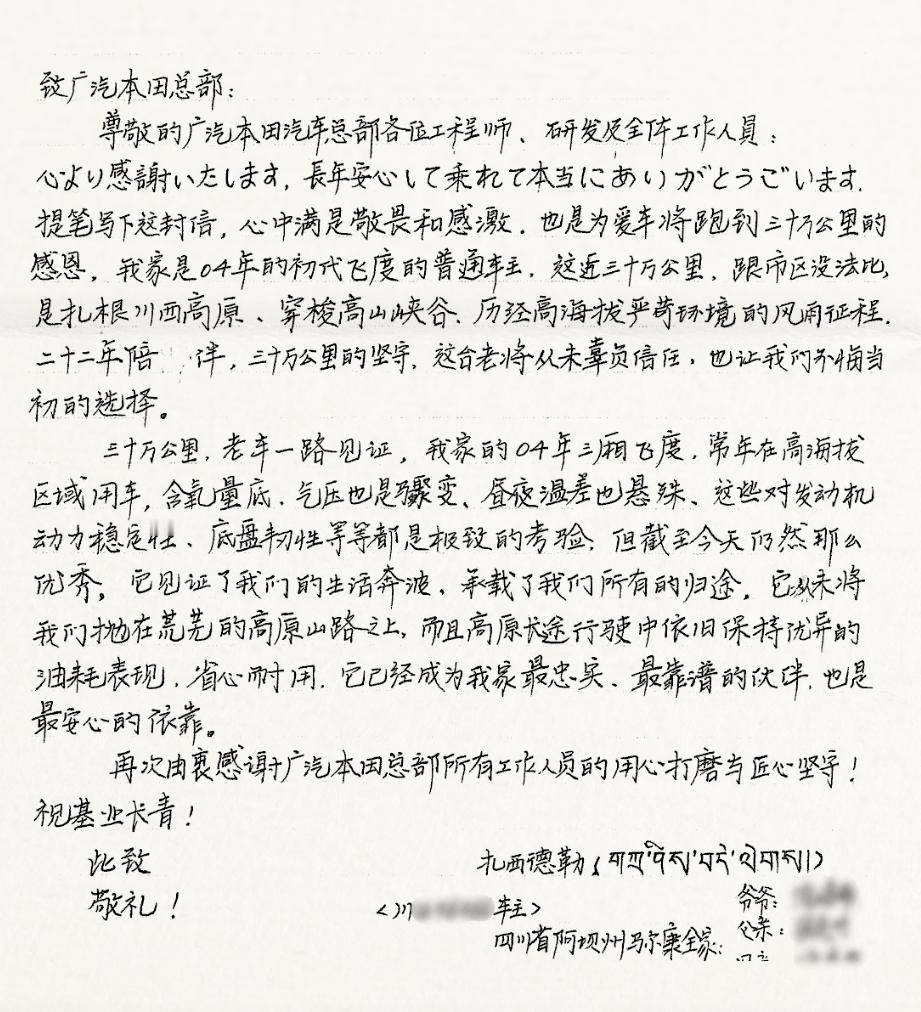 致广汽本田总部：
尊敬的广汽本田汽车总部各位工程师、研发及全体工作人員：
心より感謝いたします，長年安心して乗れて本当にありがとうございます.
提笔写下这封信，心中满是敬畏和感激，也是为爱车将跑到三十万公里的
感恩，我家是04年的初代飞度的普通车主，这近三十万公里，跟市区没法比，
是扎根川西高原、穿梭高山峡谷、历经高海拔严苛环境的风雨征程.
二十二年陪 伴，三十万公里的坚守，这台老将从未辜负信任，也让我们不悔当
初的选择。
三十万公里，老车一路见证，我家的04年三厢飞度，常年在高海拔
区域用车，含氧量底、气压也是骤变、昼夜温差也悬殊、这些对发动机
动力稳定性、底盘韧性等等都是极致的考验，但截至今天仍然那么
优秀。它见证了我们的生活奔波，承载了我们所有的归途，它从未将
我们抛在荒芜的高原山路之上，而且高原长途行驶中依旧保持优异的
油耗表现，省心耐用，它已经成为我家最忠实、最靠谱的伙伴，也是
最安心的依靠。
再次由衷感谢广汽本田总部所有工作人员的用心打磨与匠心坚守！
祝基业长青！
此致
扎西德勒（བཀྲ་ཤིས་བདེ་ལེགས།）
敬礼！
<川 车主>
爷爷：
四川省阿坝州马尔康全家：
父亲：